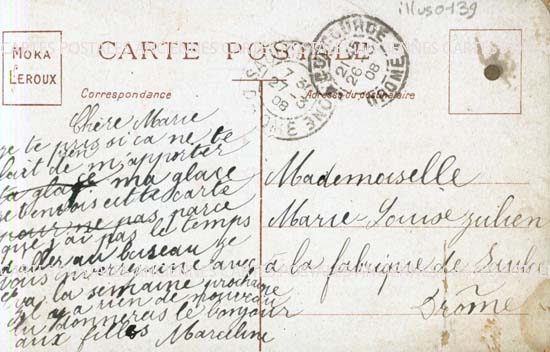 illus0139
MOKA
LEROUX
CARTE POSTALE
Correspondance
Adresse du destinataire
DRÔME
26
08
27
08
Chère Marie
je te pris si ca ne te
fait rien de m'apporter
ta glace ma glace
je t'envois cette carte
pour ne pas parce
que j'ai pas le temps
d'aller au bureau je
vous inverrai une avec
la semaine prochaine
il y a rien de nouveau
tu donneras le bonjour
aux filles Marceline
Mademoiselle
Marie-Louise Julien
à la fabrique de
Drôme